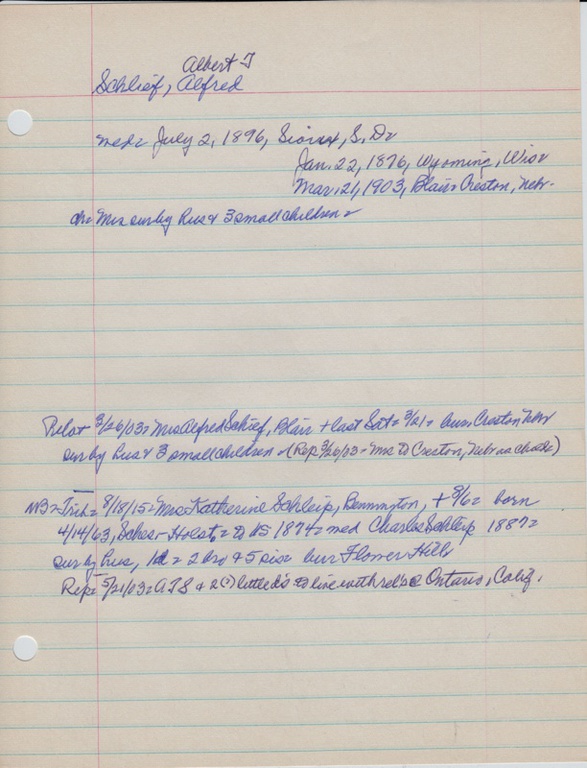 Albert T
Schlief, Alfred
med= July 2, 1896, Sioux, S, D=
Jan. 22, 1876, Wyoming, Wis=
Mar. 21, 1903, Blair= Creston, Nebr.
ch= Mrs sur by hus & 3 small children=
Pilot 3/26/03= Mrs Alfred Schief, Blair + last Sat= 3/21= bur. Creston Nebr
sur by hus & 3 small children= (Rep 3/26/03= Mrs to Creston, Nebr
NB= Trib= 8/18/15= Mrs Katherine Schleip, Bennington, + 8/6= born
4/14/63, Schles- Holst= to US 1874= med Charles Schleip 1887=
sur by hus, 1d= 2 bro & 5 sis= bur Flower Hill=
Rep= 5/21/03= ATS & 2(?) little d's to live with rel's @ Ontario, Calif.